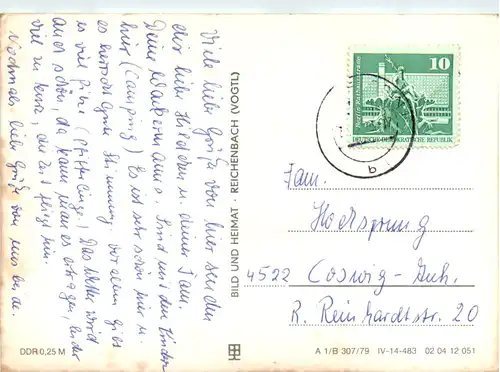 Viele liebe Grüße von hier senden
dir liebe Hildchen u. deiner Fam.
Deine Sind mit den Kinder
hier (Camping) Es ist sehr schön hier u.
es herrscht gute Stimmung vor allem gibt
es viel Pilze (Pfifferlinge) Das Wetter wird
auch schön, da kann man es ertragen, leider
viel zu kurz, die Zeit fliegt hin.
Nochmals liebe Grüße von uns beide.
BILD UND HEIMAT · REICHENBACH (VOGTL)
10
Berlin, Rathausstraße
DEUTSCHE DEMOKRATISCHE REPUBLIK
a
Fam.
Hochsprung
4522 Coswig-Anh.
R. Reinhardtstr. 20
DDR 0,25 M
A 1/B 307/79 IV-14-483 02 04 12 051